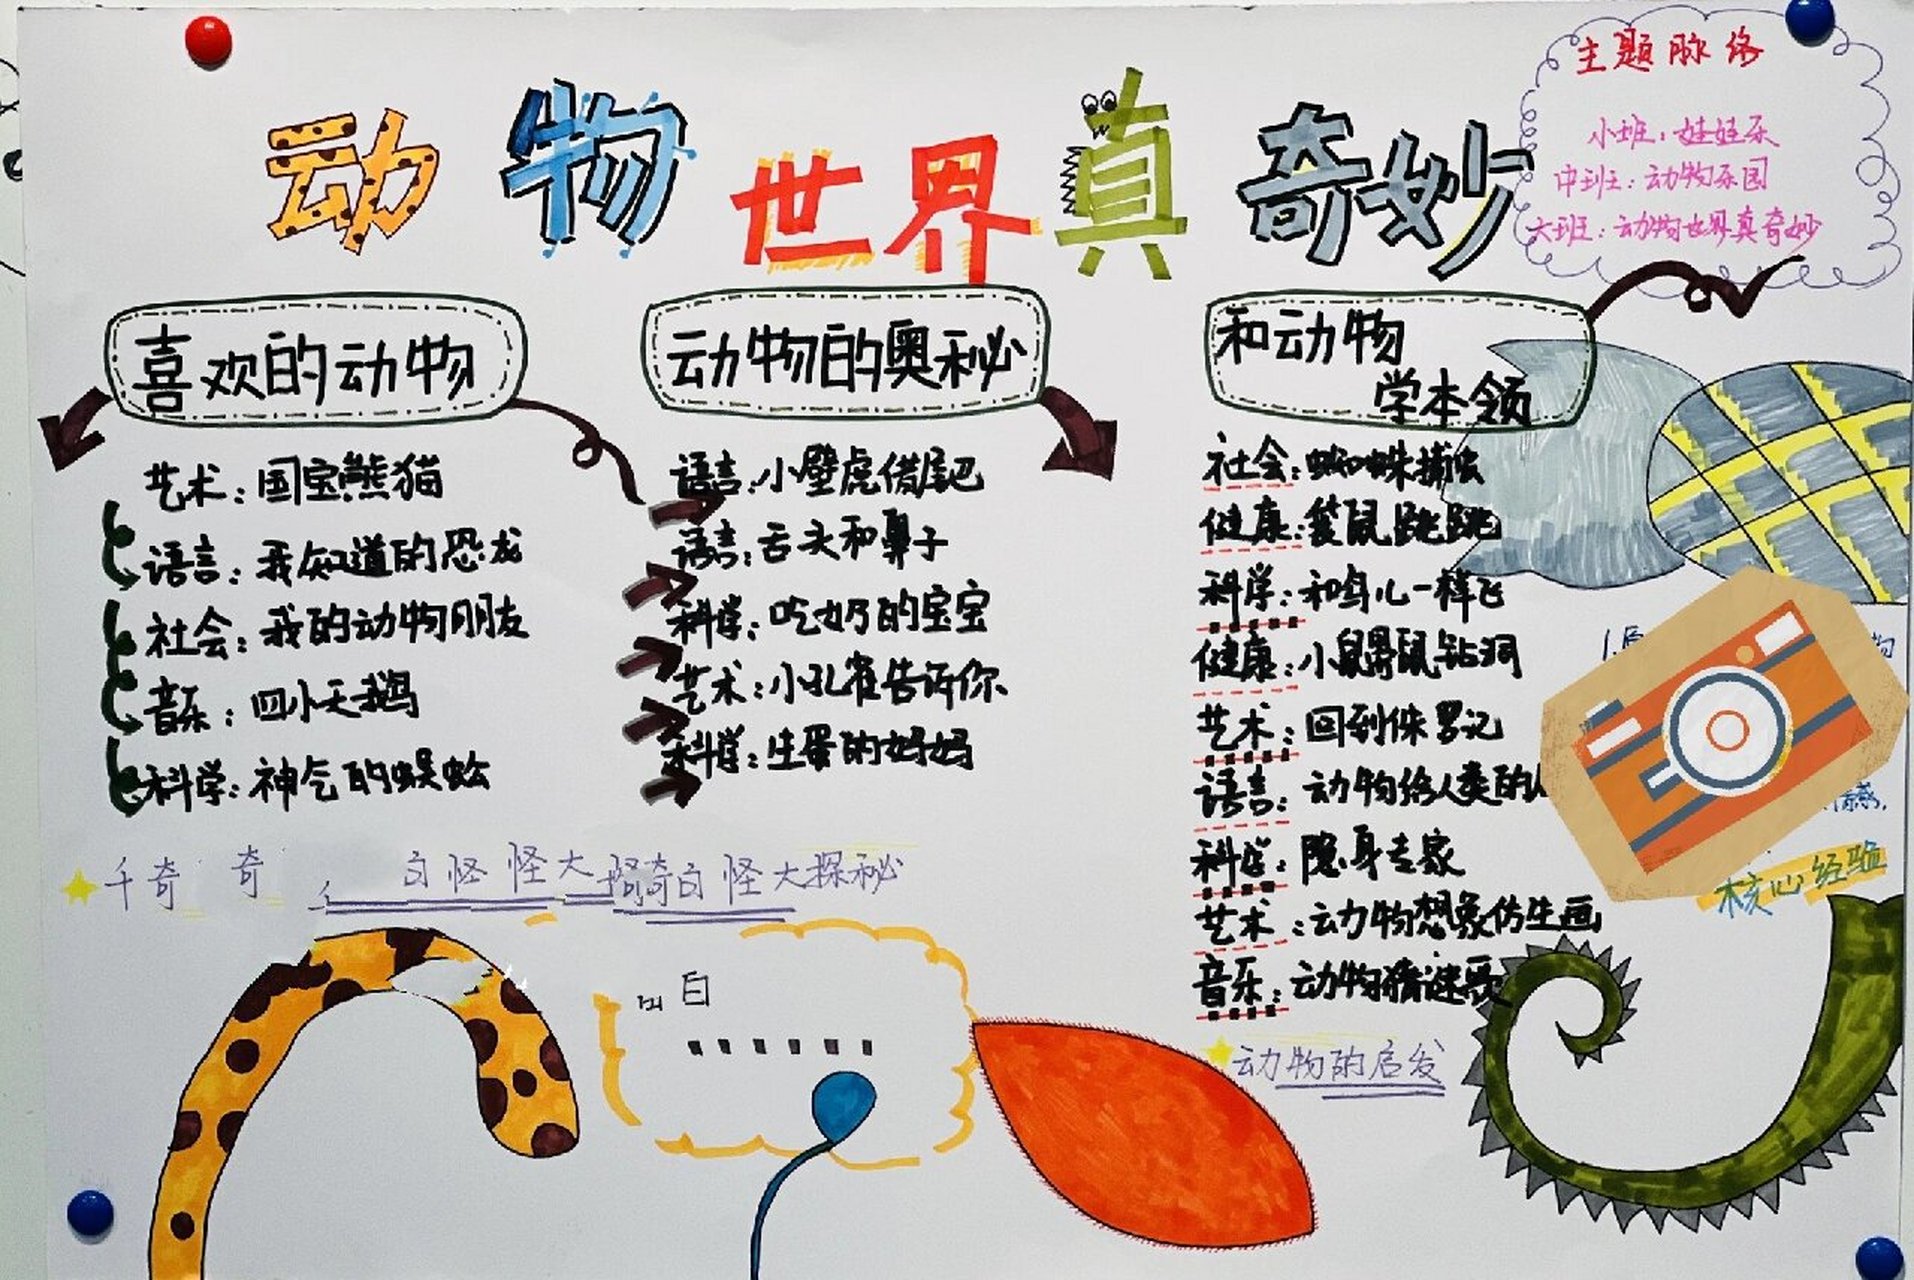 动物世界真奇妙
主题脉络
小班：娃娃乐
中班：动物乐园
大班：动物世界真奇妙
喜欢的动物
艺术：国宝熊猫
语言：我知道的恐龙
社会：我的动物朋友
音乐：四小天鹅
科学：神气的蜈蚣
动物的奥秘
语言：小壁虎借尾巴
语言：舌头和鼻子
科学：吃奶的宝宝
艺术：小孔雀告诉你
科学：生蛋的妈妈
和动物
学本领
社会：蜘蛛捕虫
健康：袋鼠跳跳
科学：和鸟儿一样飞
健康：小鼹鼠钻洞
艺术：回到侏罗记
语言：动物给人类的
科学：隐身专家
艺术：动物想象仿生画
音乐：动物猜谜歌
千奇 奇
怪怪大
奇白怪大探秘
白
动物的启发
核心经验